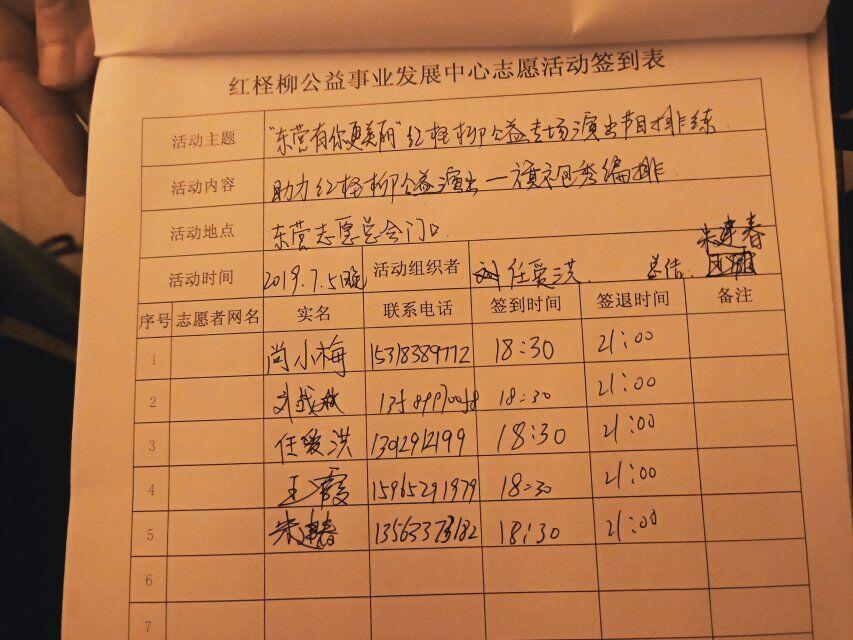 红柽柳公益事业发展中心志愿活动签到表
活动主题 "东营有你更美丽"红柽柳公益专场演出节目排练
活动内容 助力红柽柳公益演出一旗袍秀编排
活动地点 东营志愿总会门口
活动时间 2019.7.5晚 活动组织者 任爱洪 总结: 朱建春
序号 志愿者网名 实名 联系电话 签到时间 签退时间 备注
1 尚小梅 15318389772 18:30 21:00
2 18:30 21:00
3 任爱洪 18:30 21:00
4 王霞 15965291979 18:30 21:00
5 朱建春 18:30 21:00
6
7